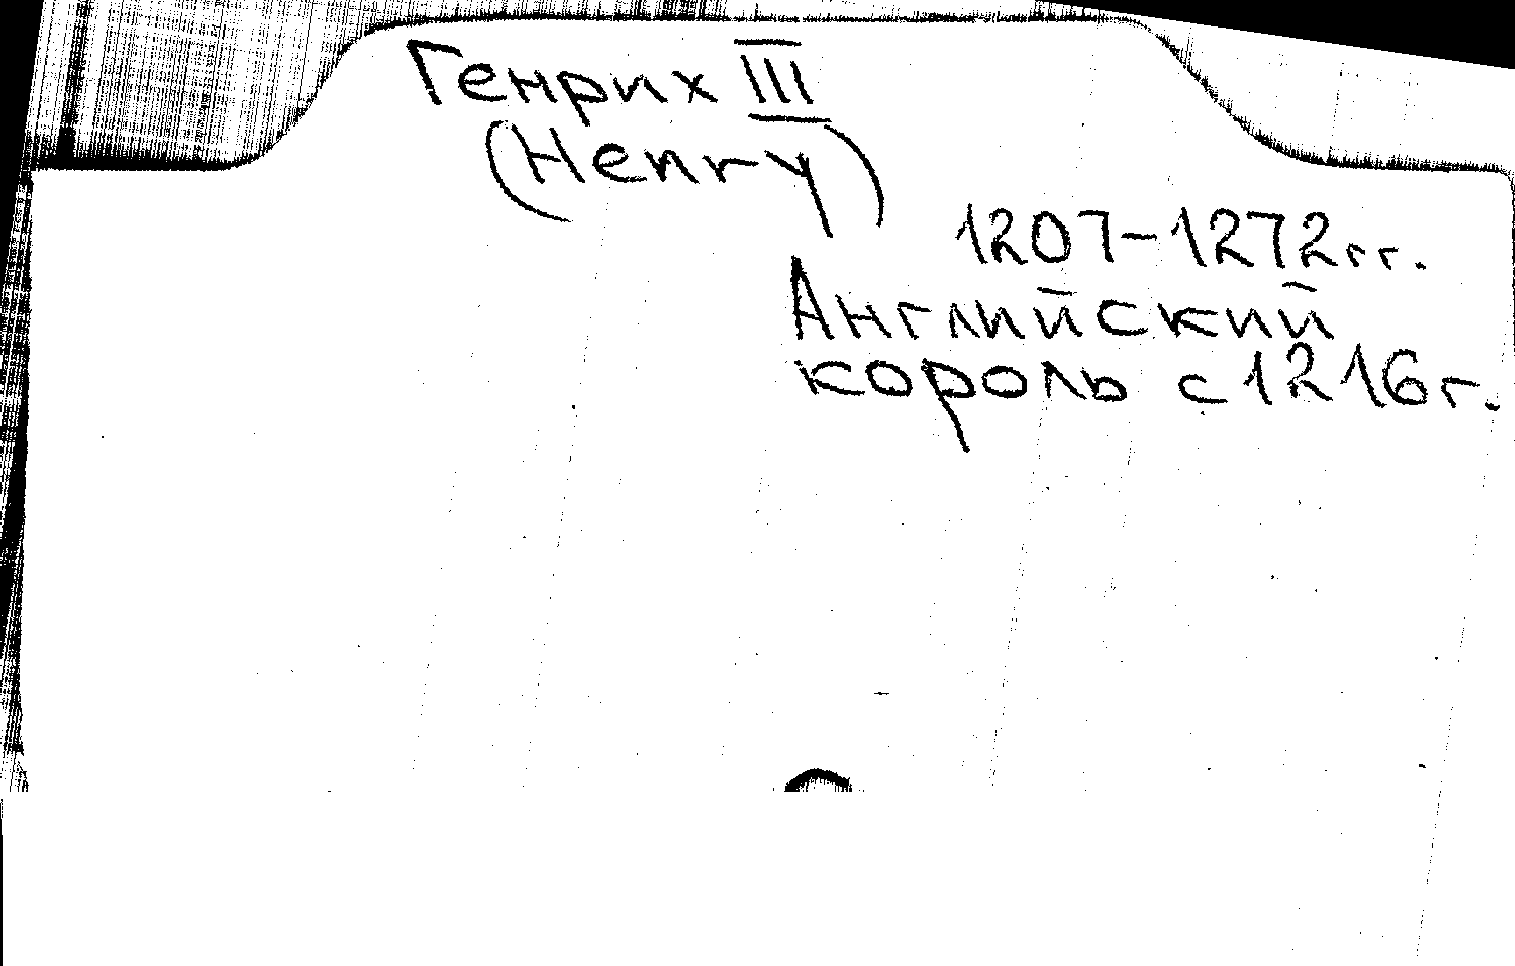 Генрих III
(Henry)
1207-1272гг.
Английский
король с 1216г.